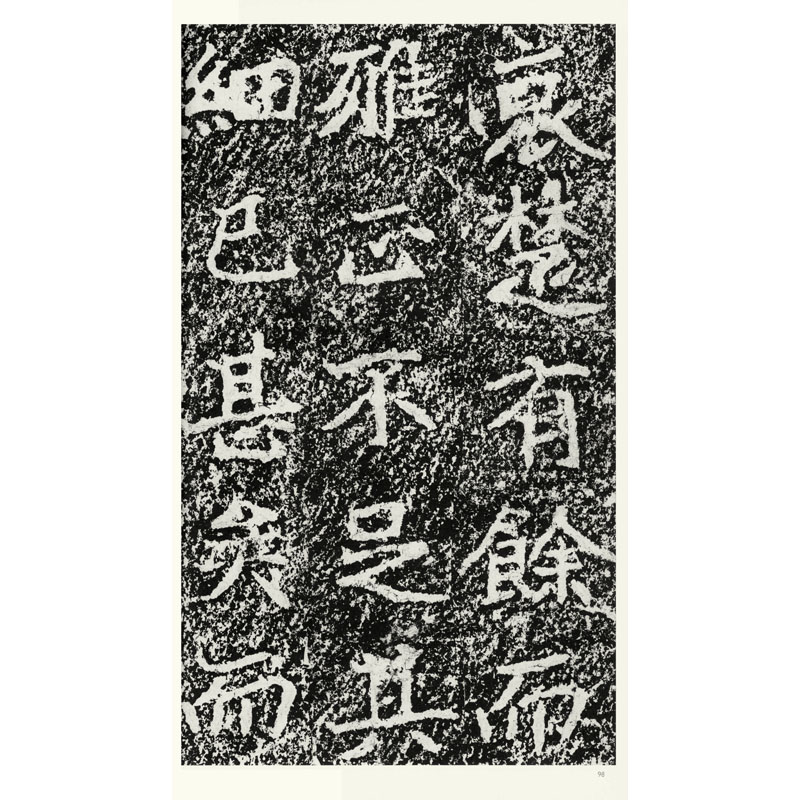 哀楚有餘而
雅正不足其
細已甚矣而
98